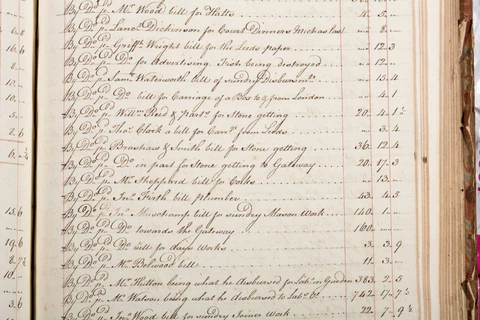 By Do pd Mr Wood bill for Watts 4.. 5..
By Do pd Lanct Dickinson for Court Dinners Michas last .. 8..
By Do pd Griffh Wright bill for the Leeds paper .. 12.. 3
By Do pd Do for advertising Fish being destroyed .. 12..
By Do pd Saml Waterworth bill of sundry Disbursmts .. 15.. 4
By Do pd Do bill for Carriage of a Box to & from London .. 4.. 1
By Do pd Willm Reed & partr for Stone getting 20.. 4.. 1½
By Do pd Thos Clark a bill for Carre from Leeds .. 3.. 4
By Do pd Smith bill for Stone getting 36.. 12.. 4
By Do pd Do in part for Stone getting to Gateway 20.. 17.. 3
By Do pd Mr Shepperd bill for Corks .. 13..
By Do pd Jno Firth bill plumber 43.. 4.. 5
By Do pd Jno Muschamp bill for sundry Mason Work 140.. 1..
By Do pd Do towards the Gateway 160..
By Do pd Do bill for days Works 3.. 3.. 9
By Do pd Mr Bolwood bill 11.. 3..
By Do pd Mr Hutton being what he disbursed for Labrs in Garden 383.. 2.. 5
By Do pd Mr Watson being what he disbursed to Labrs &c 742.. 17.. 7½
By Do pd Jno Wood bill for sundry Joiner Work 22.. 7.. 9½